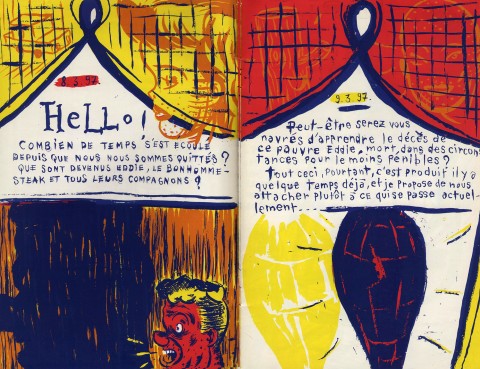 8.3.97
HeLLo!
COMBIEN DE TEMPS S'EST ECOULÉ
DEPUIS QUE NOUS NOUS SOMMES QUITTÉS ?
QUE SONT DEVENUS EDDIE, LE BONHOMME-
STEAK ET TOUS LEURS COMPAGNONS ?
9.3.97.
Peut-être serez vous
navrés d'apprendre le décès de
ce pauvre Eddie, mort dans des circons
tances pour le moins pénibles ?
Tout ceci, pourtant, c'est produit il y a
quelque temps déjà, et je propose de nous
attacher plutôt à ce qui se passe actuel-
lement....